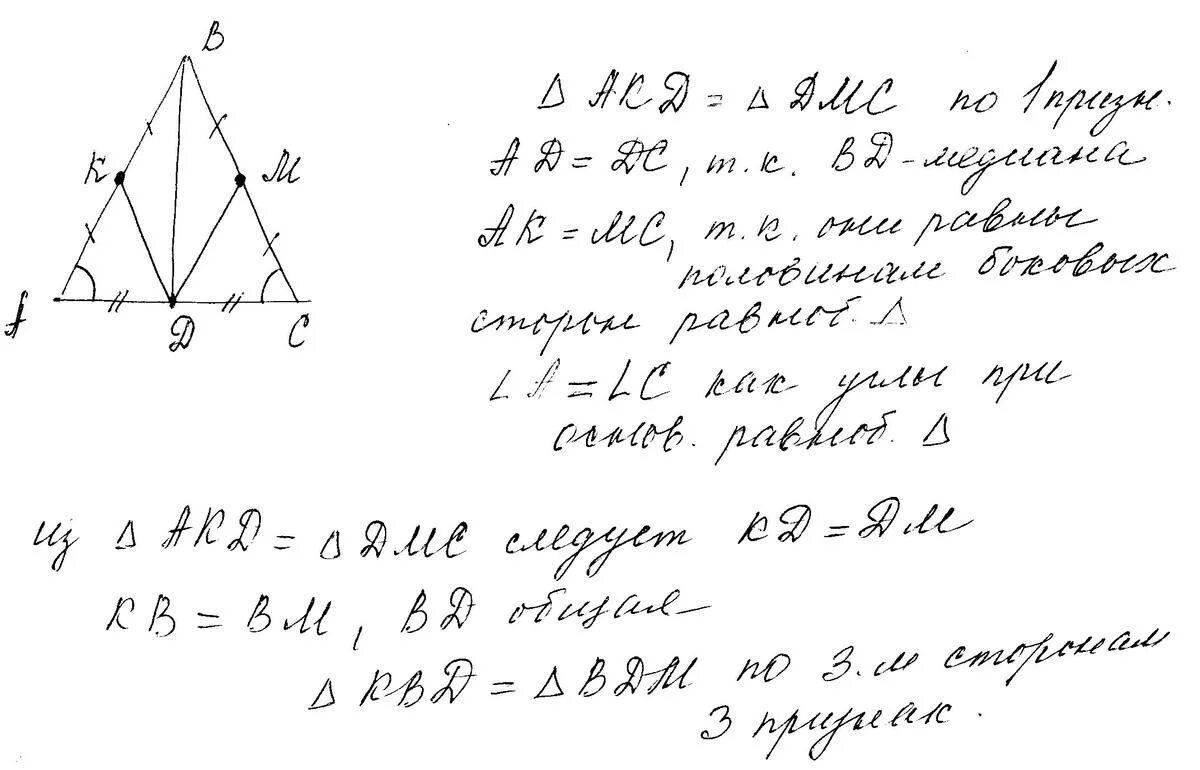 B
K
M
A
D
C
△ AKD = △ DMC по 1 призн.
AD = DC, т.к. BD - медиана
AK = MC, т.к. они равны
половинам боковых
сторон равноб. △
∠A = ∠C как углы при
основ. равноб. △
из △ AKD = △ DMC следует KD = DM
KB = BM, BD общая
△ KBD = △ BDM по 3.м сторонам
3 признак.